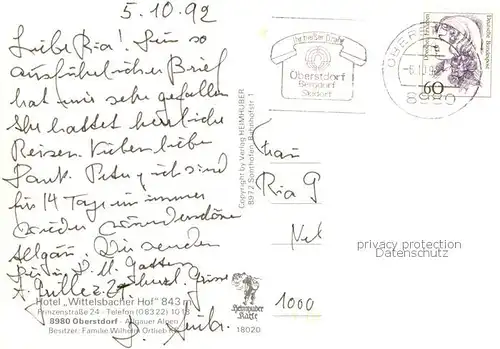 5.10.92
Liebe Ria! Ein so
ausführlicher Brief
hat mir sehr gefallen
Ihr hattet herrliche
Reisen. Vielen lieben
Dank. Peter u. ich sind
für 14 Tage im immer
wieder wunderschönen
Allgäu Wir senden
herzl. Grüsse
Hotel „Wittelsbacher Hof" 843 m
Prinzenstraße 24 - Telefon (08322) 1018
8980 Oberstdorf - Allgäuer Alpen
Besitzer: Familie Wilhelm Ortlieb
Copyright by Verlag HEIMHUBER
8972 Sonthofen, Bahnhofstr. 1
Heimhuber
Karte
18020
Oberstdorf
Bergdorf
Skidorf
OBERSTD
8980
Deutsche Bundespost
60
Frau
Ria G
1000
privacy protection
Datenschutz